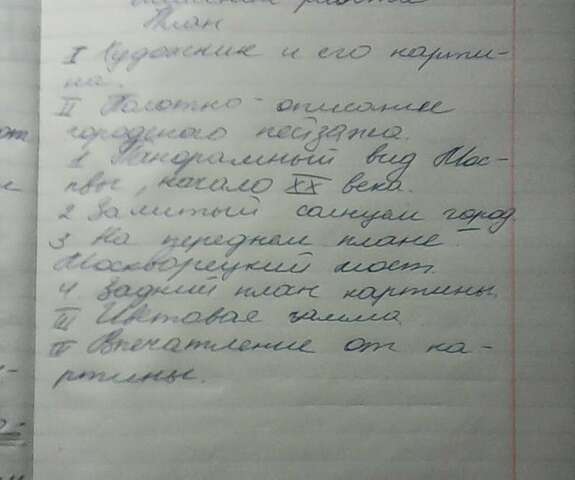 План
I Художник и его карти-
на.
II Полотно - описание
городского пейзажа.
1 Панорамный вид Мос-
квы, начало XX века.
2 Залитый солнцем город
3 На переднем плане
Москворецкий мост.
4 Задний план картины
III Цветовая гамма
IV Впечатление от ка-
ртины.